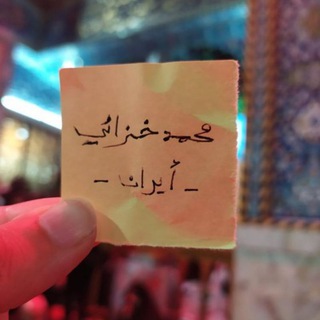 محمد خزائي
- أيران -